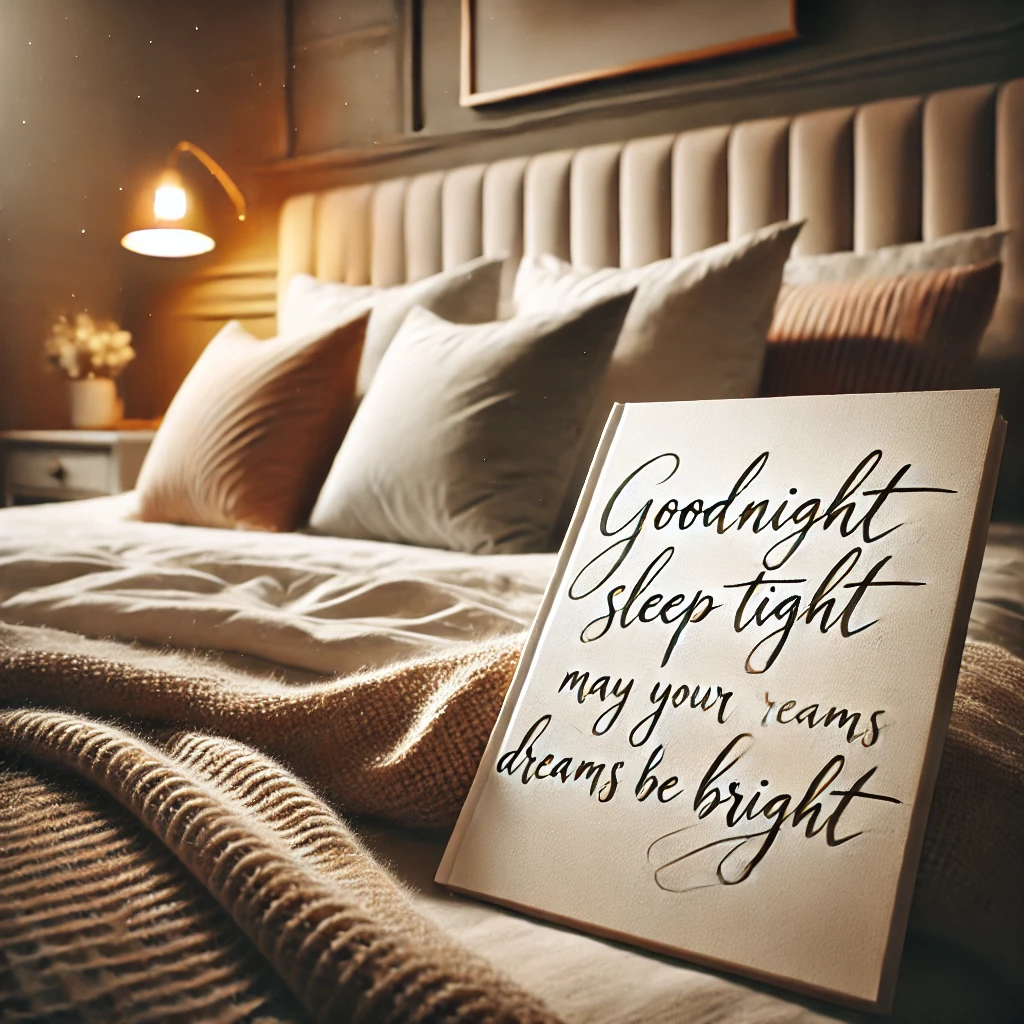 Goodnight
sleep tight
may your reams
dreams be bright